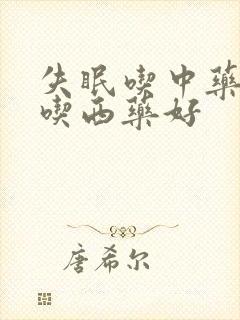 失眠喫中藥
喫西藥好
唐希尔